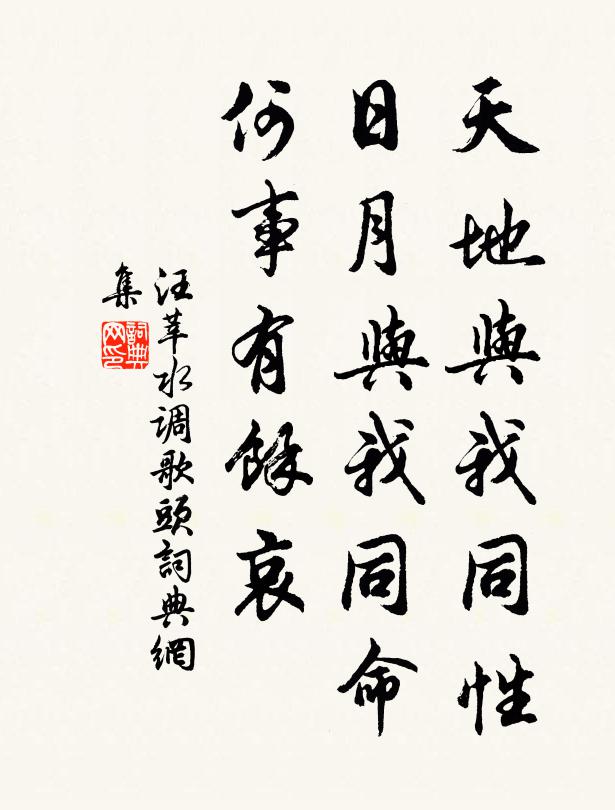 天地與我同性
日月與我同命
何事有餘哀
汪莘水调歌頭詞典網
集
詞典网印